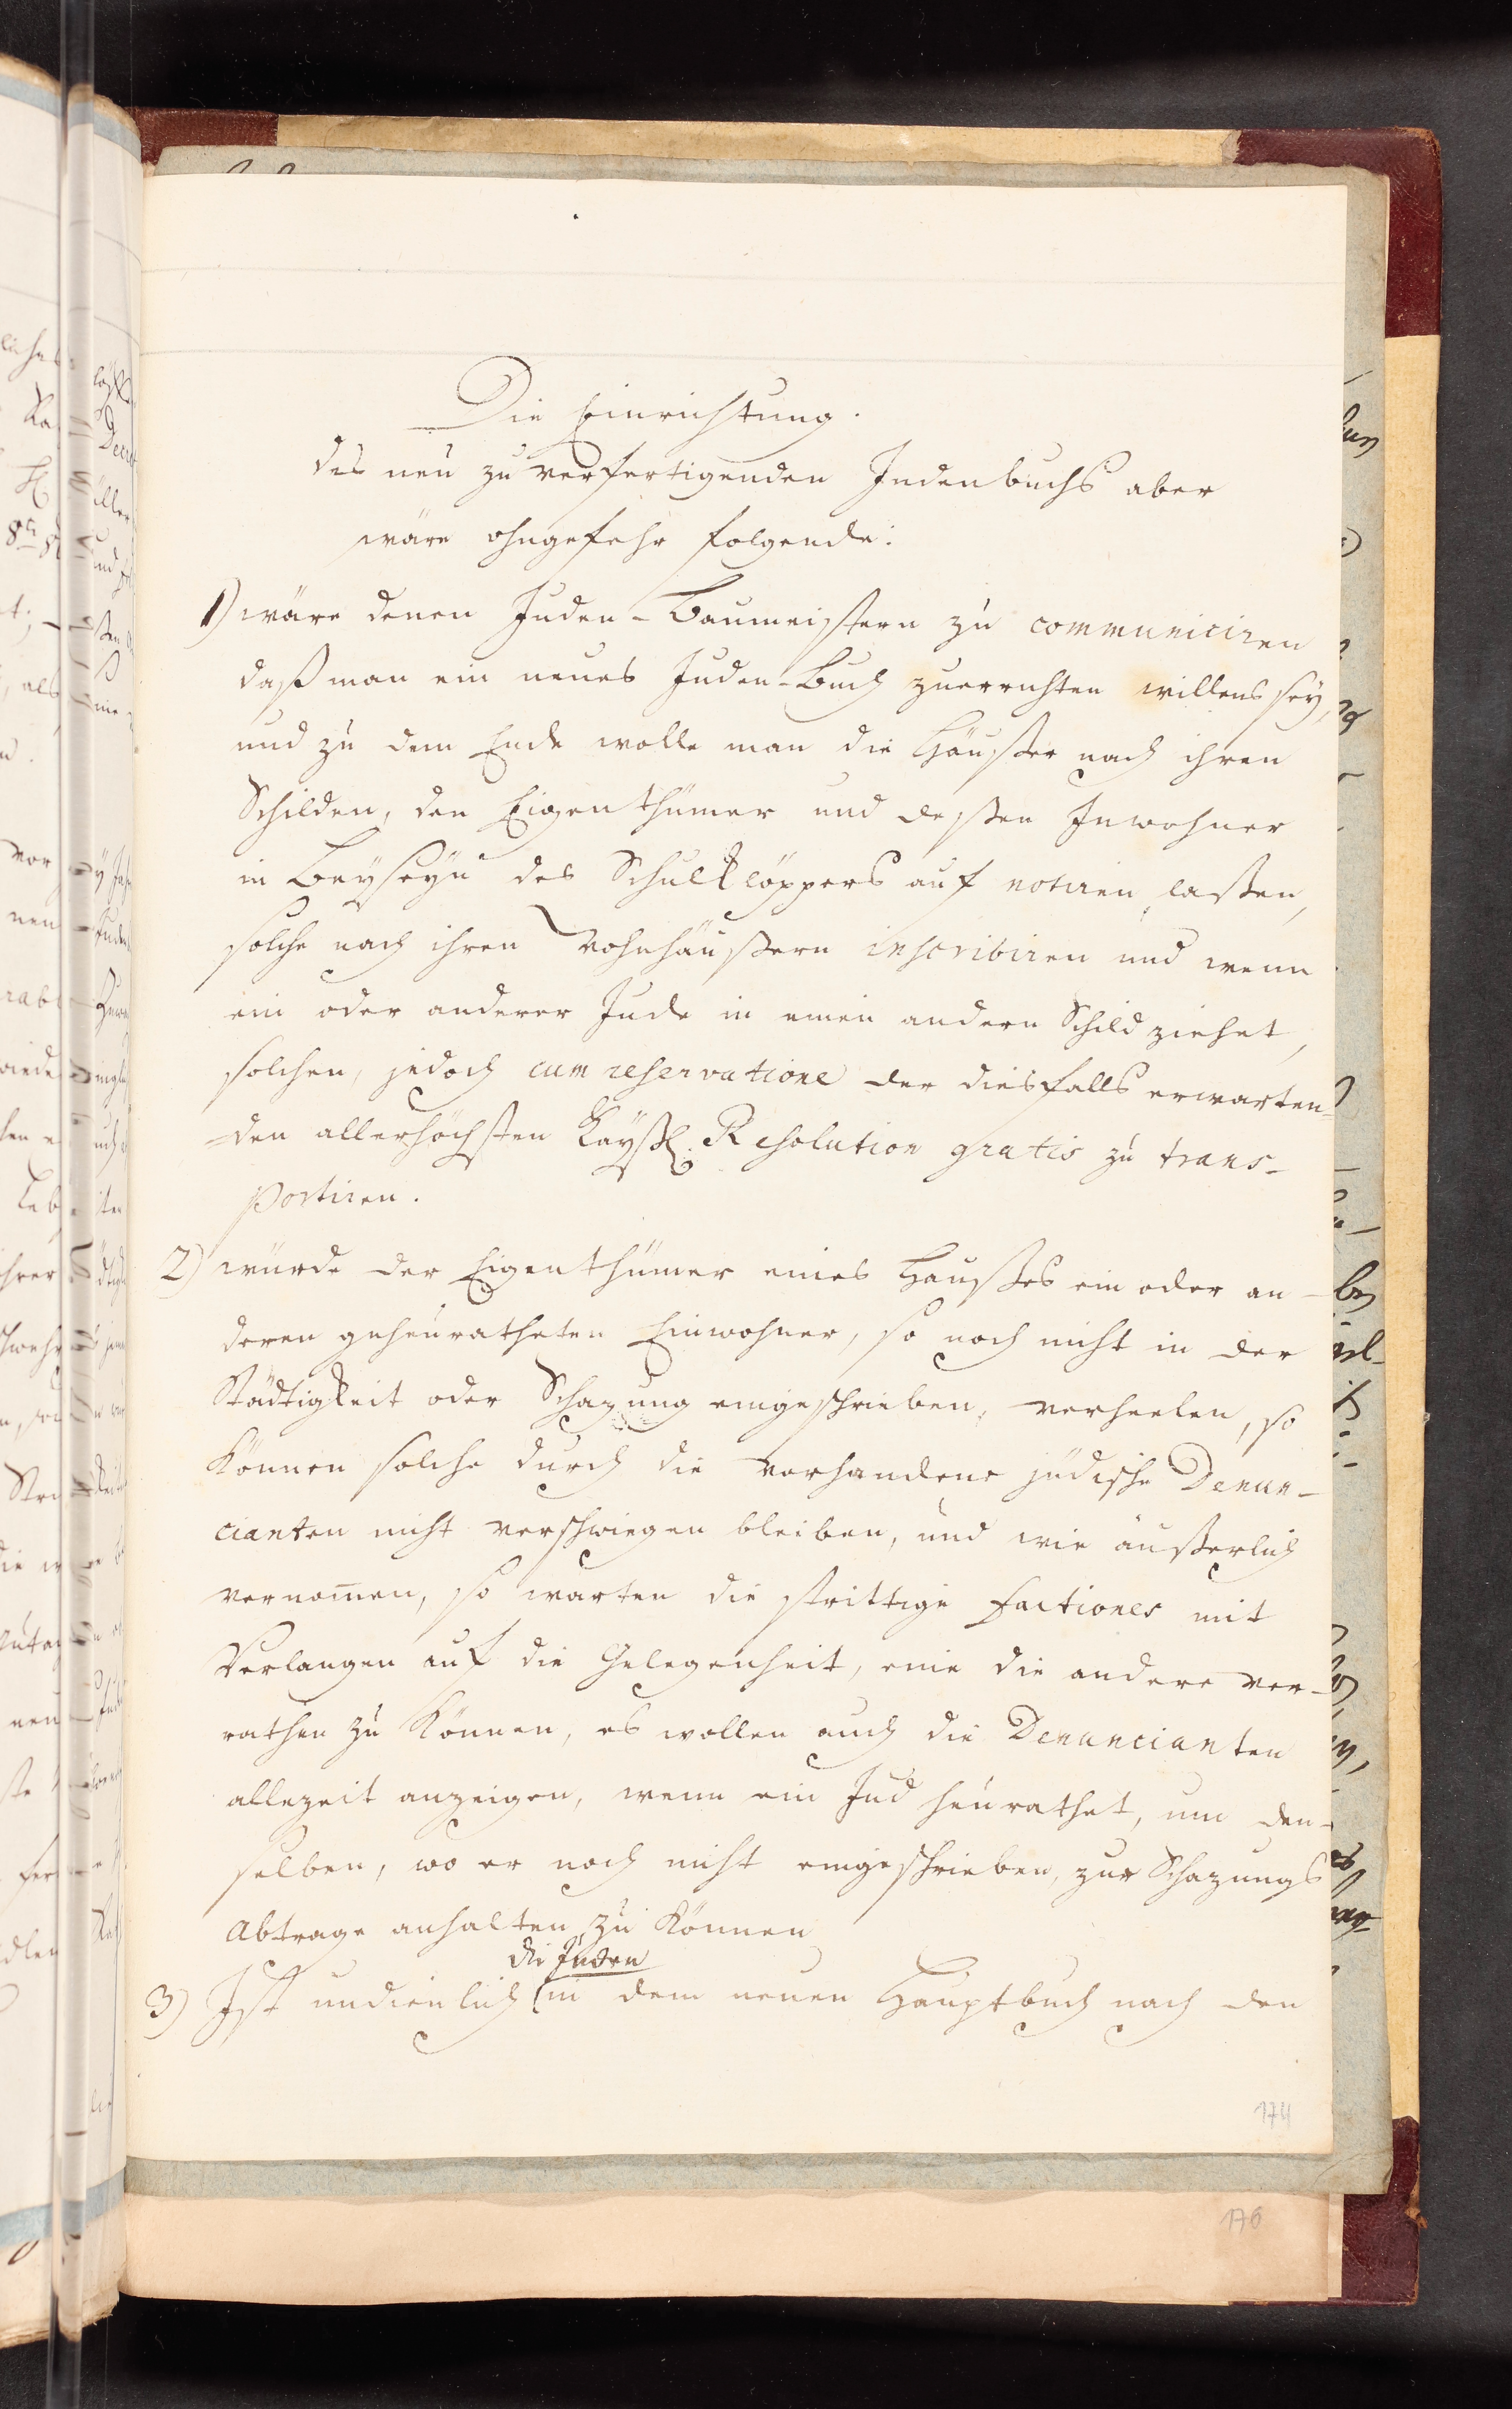 Die Einrichtung.
des neu zu verfertigenden Judenbuchs aber
wäre ohngefehr folgende:
1) wäre denen Juden-Baumeistern zu communiciren
daß man ein neues Juden-Buch zuerrichten willens sey,
und zu dem Ende wolle man die Häußer nach ihren
Schilden, den Eigenthümer und deßen Inwohner
in Beyseyn des Schulklöppers auf notiren laßen,
solche nach ihren Wohnhäußern inscribiren und wenn
ein oder anderer Jude in einen andern Schild ziehet,
solchen, jedoch cum reservatione der diesfalls erwarten-
den allerhöchsten Kayßl. Resolution gratis zu trans-
portiren.
2) würde der Eigenthümer eines Haußes ein oder an-
deren geheuratheten Einwohner, so noch nicht in der
Städtigkeit oder Schazung eingeschrieben, verheelen, so
können solche durch die vorhandene jüdische Denun-
cianten nicht verschwiegen bleiben, und wie äußerlich
vernom̄en, so warten die strittige factiones mit
Verlangen auf die Gelegenheit, eine die andere ver-
rathen zu können, es wollen auch die Denuncianten
allezeit anzeigen, wenn ein Jud heurathet, um den-
selben, wo er noch nicht eingeschrieben, zur Schazungs
Abtrage anhalten zu können
die Juden
3) Ist undienlich (in dem neuen Hauptbuch nach den
174
176